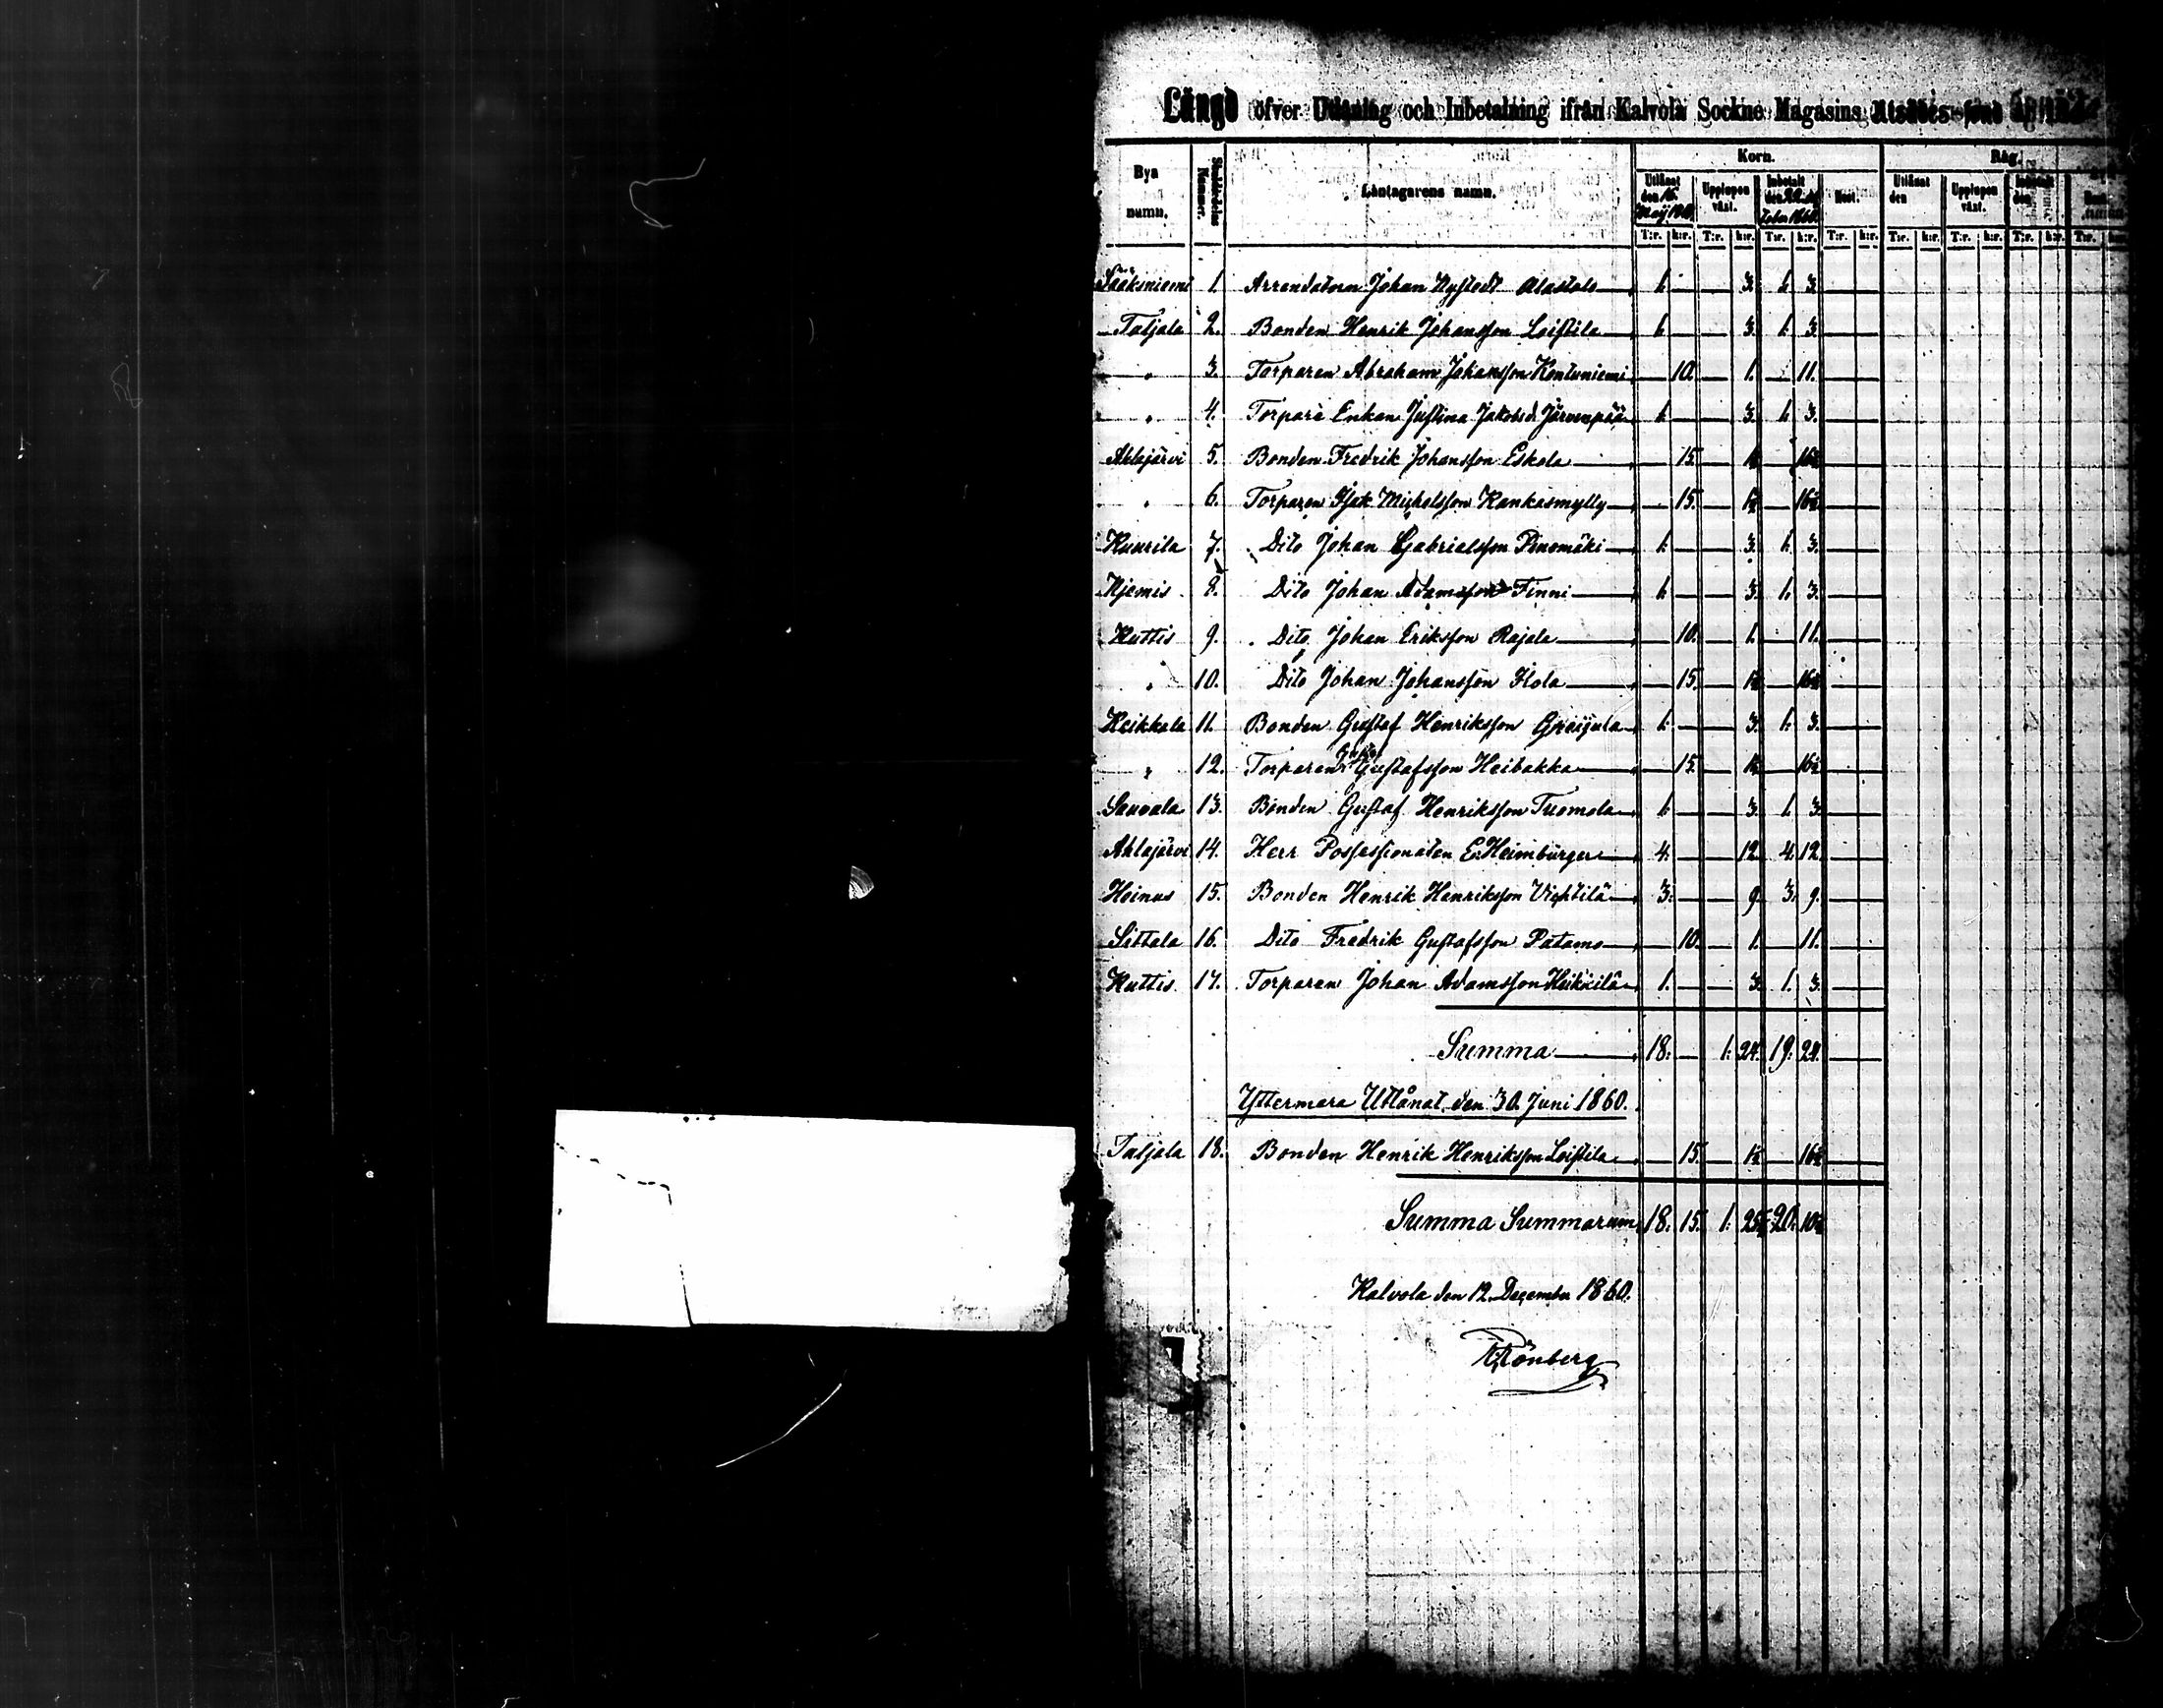 Längd öfver Utlåning och Inbetalning ifrån Kalvola Sockne Magasins Utsädes-fond
Bya namn. Skuldsedelns Nummer. Låntagarens namn. Korn. Råg.
Utlånt den 16 Maij 1860 Upplupen växt. Inbetalt den Rest. Utlånt den Upplupen växt. Inbetalt den Rest.
T:r. k:r. T:r. k:r. T:r. k:r. T:r. k:r. T:r. k:r. T:r. k:r. T:r. k:r. T:r. k:r.
Sääksniemi 1. Arrendatorn Johan Nystedt Alastalo 1. — — 3. 1. 3. —
Taljala 2. Bonden Henrik Johansson Leistila 1. — — 3. 1. 3. —
" 3. Torparen Abraham Johansson Kontuniemi — 10. — 1. — 11. —
" 4. Torpare Enkan Justina Jakobsd. Järvenpää 1. — — 3. 1. 3. —
Ahlajärvi 5. Bonden Fredrik Johansson Eskola — 15. — 1½ — 16½ —
" 6. Torparen Isak Michelsson Kankasmylly — 15. — 1½ — 16½ —
Kuurila 7. Dito Johan Gabrielsson Pinomäki 1. — — 3. 1. 3. —
Njemis 8. Dito Johan Adamsson Finni 1. — — 3. 1. 3. —
Kuttis 9. Dito Johan Eriksson Rajala — 10. — 1. — 11. —
" 10. Dito Johan Johansson Ilola — 15. — 1½ — 16½ —
Keikkala 11. Bonden Gustaf Henriksson Greijula 1. — — 3. 1. 3. —
" 12. Torparen Gustafsson Heibakka — 15. — 1½ — 16½ —
Sauvala 13. Bonden Gustaf Henriksson Tuomola 1. — — 3. 1. 3. —
Ahlajärvi 14. Herr Possessionaten E. Heimbürger 4. — — 12. 4. 12. —
Heinus 15. Bonden Henrik Henriksson Vichtilä 3. — — 9. 3. 9. —
Sittala 16. Dito Fredrik Gustafsson Patamo — 10. — 1. — 11. —
Kuttis 17. Torparen Johan Adamsson Heikkilä 1. — — 3. 1. 3. —
Summa 18. — 1. 24. 19. 24. —
Yttermera Utlånat den 30 Juni 1860.
Taljala 18. Bonden Henrik Henriksson Leistila — 15. — 1½ — 16½ —
Summa Summarum 18. 15. 1. 25½ 20. 10½
Kalvola den 12 December 1860.